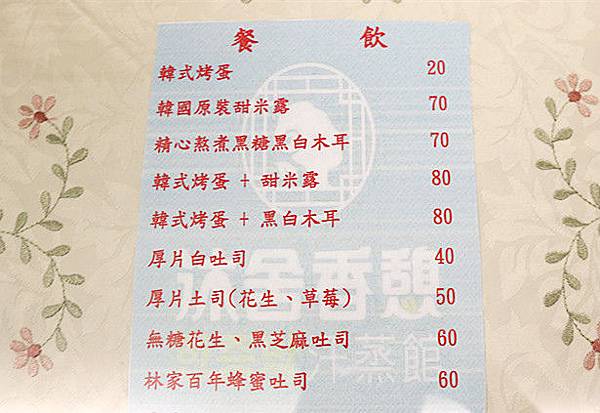 餐 飲
韓式烤蛋 20
韓國原裝甜米露 70
精心熬煮黑糖黑白木耳 70
韓式烤蛋 + 甜米露 80
韓式烤蛋 + 黑白木耳 80
厚片白吐司 40
厚片土司(花生、草莓) 50
無糖花生、黑芝麻吐司 60
林家百年蜂蜜吐司 60
舍香憩
汗蒸館